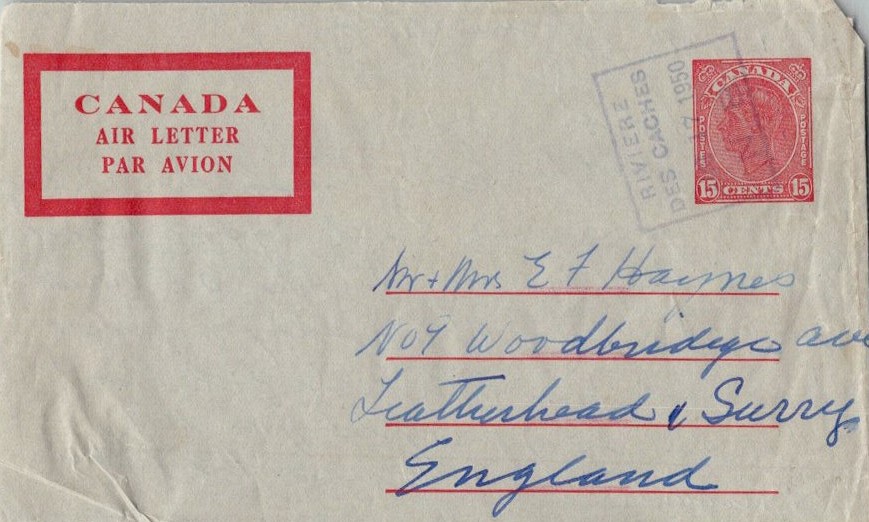 CANADA
AIR LETTER
PAR AVION
RIVIERE
DES CACHES
17 1950
CANADA
POSTES
POSTAGE
15 CENTS 15
Mr + Mrs E F Haynes
No 9 Woodbridge ave
Leatherhead Surry
England